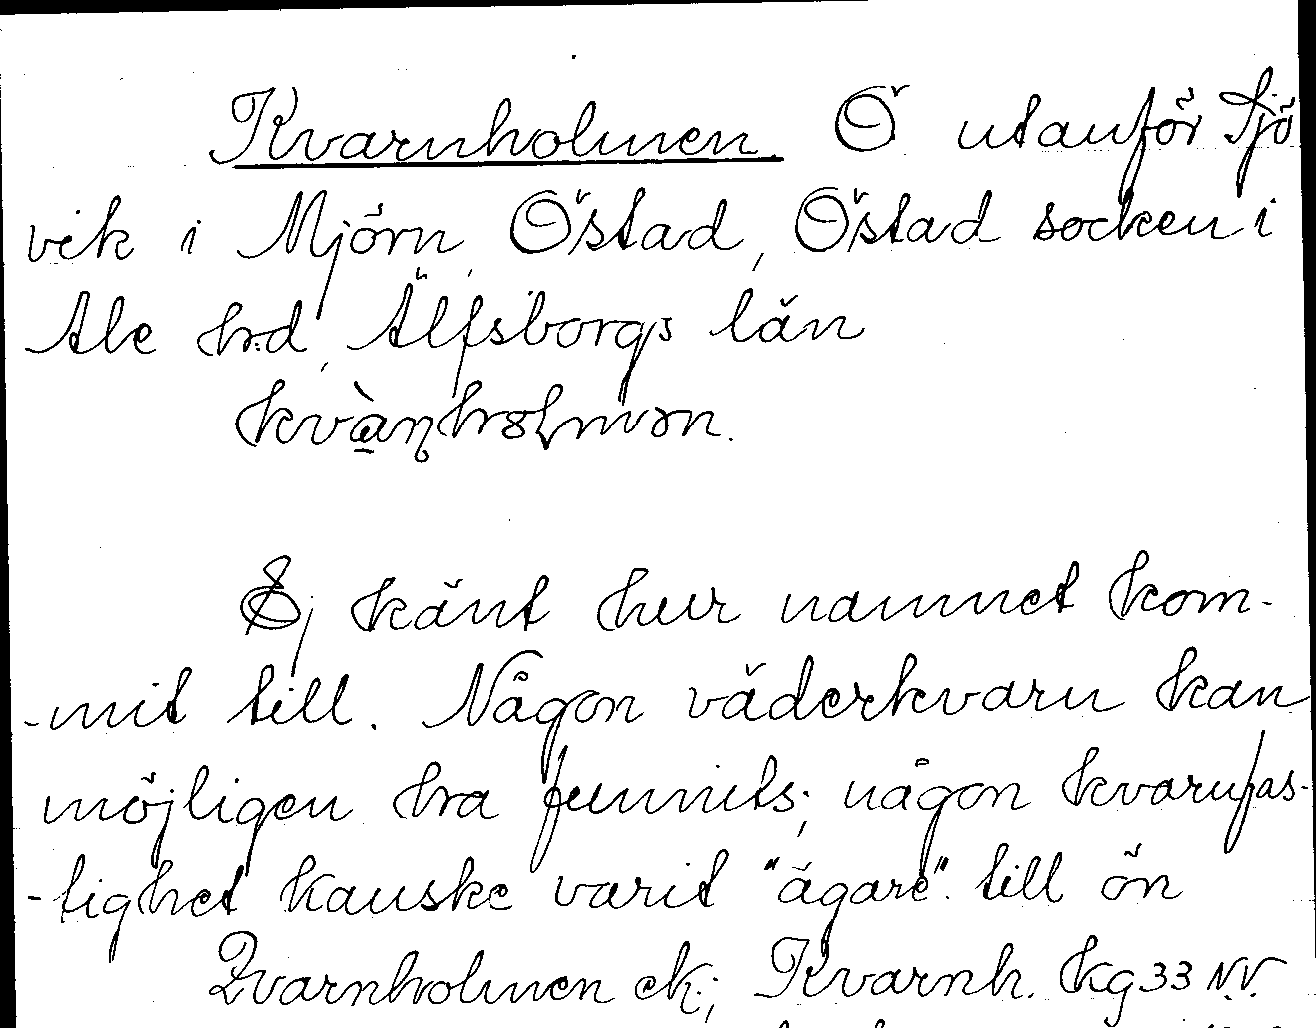 Kvarnholmen. Ö utanför Sjö
vik i Mjörn, Östad, Östad socken i
Ale hrd, Älfsborgs län
Ej känt hur namnet kom-
-mit till. Någon väderkvarn kan
möjligen ha funnits; någon kvarnfas-
-tighet kanske varit "ägare". till ön
Qvarnholmen ek.; Kvarnh. Kg 33 N.V.